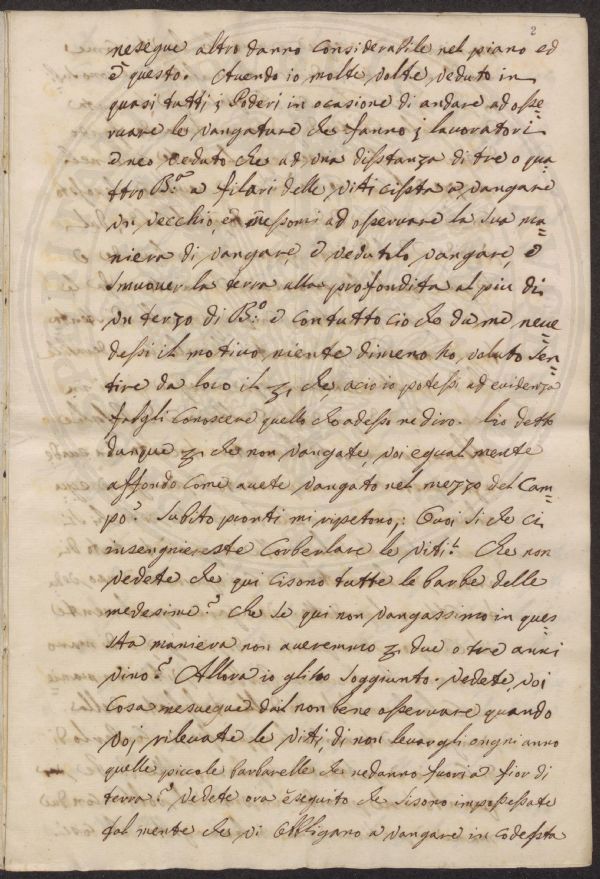 2
nesegue altro danno considerabile nel piano ed
è questo. Avendo io molte volte veduto in
quasi tutti i Poderi in ocasione di andare ad osse=
rvare le vangature che fanno i lavoratori
e neo veduto che ad una disstanza di tre o qua=
ttro B:ᵃ a filari delle viti cissta a vangare
un vecchio, e messomi ad osservare la sua ma=
niera di vangare, e vedutolo vangare, e
smuover la terra alla profondita al piu di
un terzo di B:ᵒ e contutto cio che da me neve=
dessi il motivo, niente dimeno ho voluto sen=
tire da loro il che, acio io potessi ad evidenza
fargli conoscere quello che adesso ne diro. Ho detto
dunque che non vangate, voi egualmente
affondo come avete vangato nel mezzo del Cam=
po? Subito pronti mi ripetono: Si che ci
insegniereste Corbellare le viti! Che non
vedete che qui cisono tutte le barbe delle
medesime? Che se qui non vangassimo in ques=
sta maniera non averemmo due o tre anni
vino? Allora io gli ho soggiunto. Vedete, voi
cosa nesuegue dal non bene osservare quando
voi rilevate le viti, di non levargli ongni anno
quelle piccole barbarelle che nedanno fuori a fior di
terra? Vedete ora è seguito che sisono impossessate
tal mente che vi obbligano a vangare in codessta